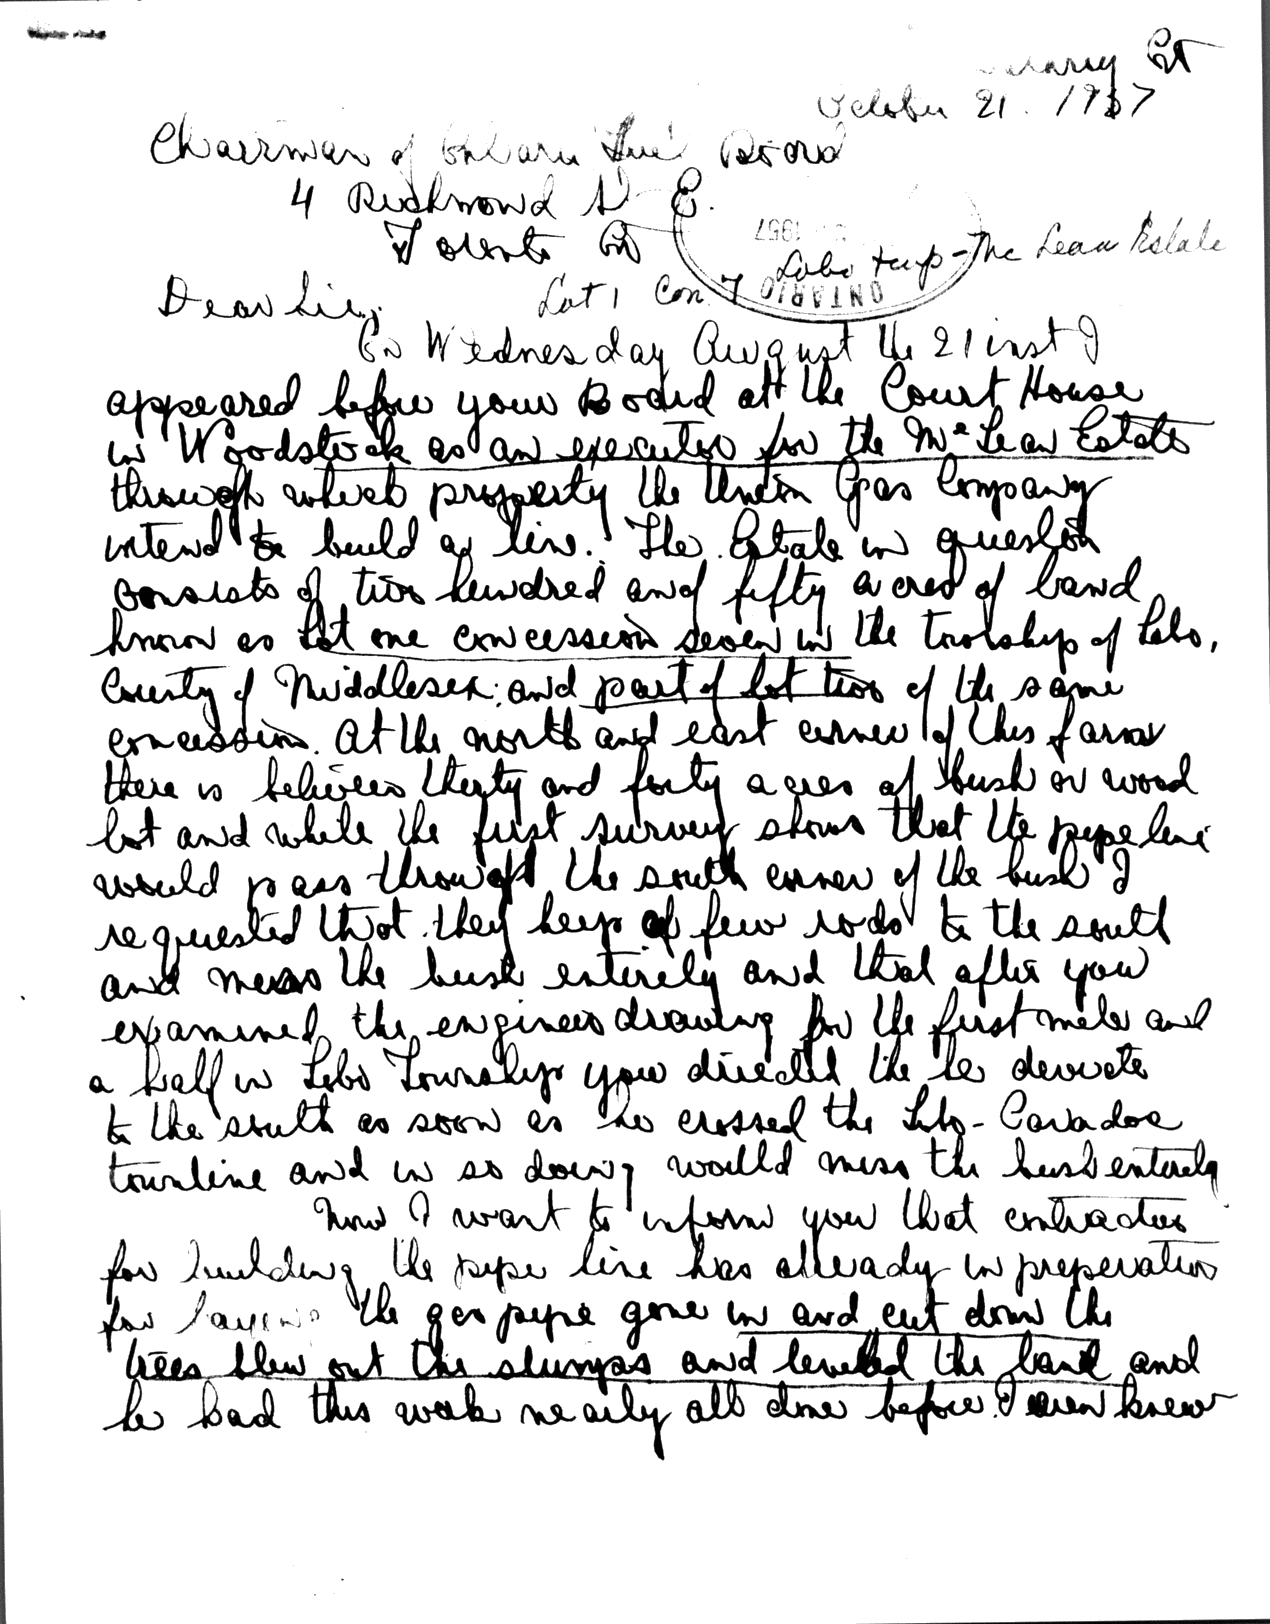 Ont
October 21. 1957
Chairman of Ontario Fuel Board
4 Richmond St E.
Toronto Ont
1957
ONTARIO
Lobo twp - Mc Lean Estate
Lot 1 Con. 7
Dear Sir;
On Wednesday August the 21 inst I
appeared before your Board at the Court House
in Woodstock as an executor for the Mc Lean Estate
through which property the Union Gas Company
intend to build a line. The Estate in question
consists of two hundred and fifty acres of land
known as Lot one concession seven in the township of Lobo,
County of Middlesex; and part of lot two of the same
concession. At the north and east corner of this farm
there is between thirty and forty acres of bush or wood
lot and while the first survey shows that the pipe line
would pass through the south corner of the bush I
requested that they keep a few rods to the south
and miss the bush entirely and that after you
examined the engineers drawing for the first mile and
a half in Lobo Township you directed the he deviate
to the south as soon as he crossed the Lobo - Caradoc
townline and in so doing would miss the bush entirely
Now I want to inform you that contractor
for building the pipe line has already in preperation
for laying the gas pipe gone in and cut down the
trees blew out the stumps and levelled the land and
he had this work nearly all done before I even knew